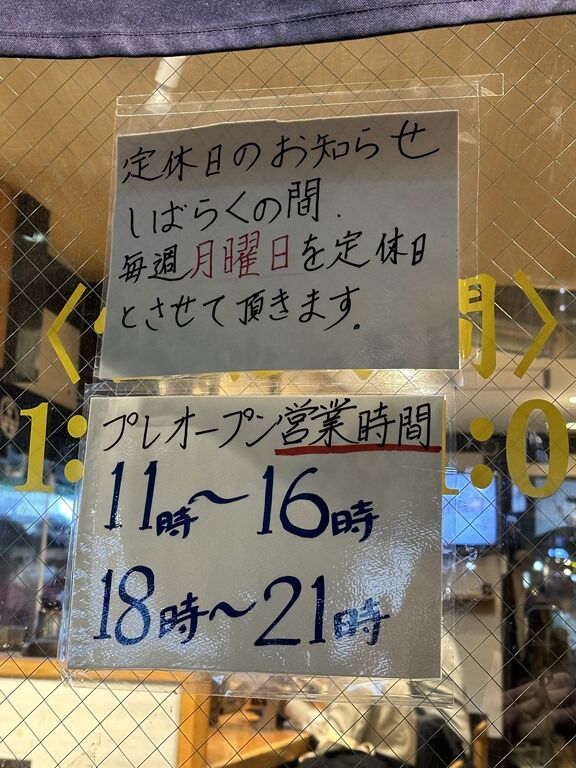 定休日のお知らせ
しばらくの間、
毎週月曜日を定休日
とさせて頂きます。
プレオープン営業時間
11時〜16時
18時〜21時